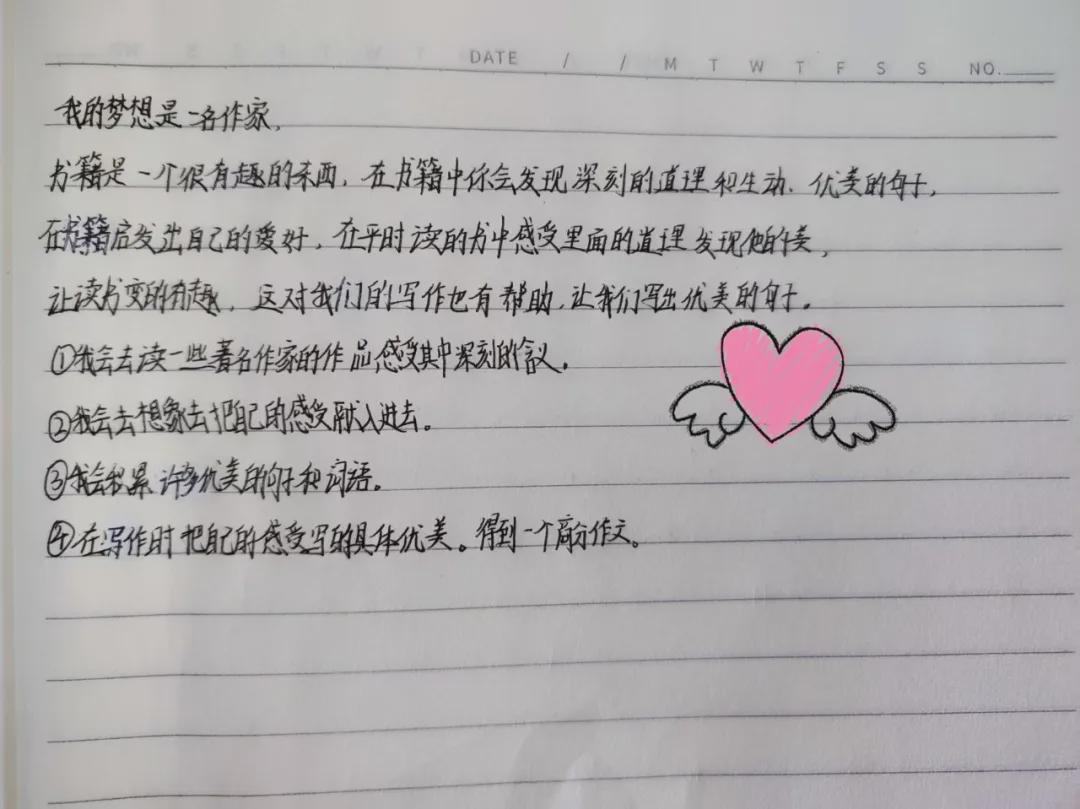 DATE / / M T W T F S S NO.
我的梦想是一名作家,
书籍是一个很有趣的东西,在书籍中你会发现深刻的道理和生动、优美的句子,
在书籍启发出自己的爱好,在平时读的书中感受里面的道理发现他的美,
让读书变的有趣,这对我们的写作也有帮助,让我们写出优美的句子。
①我会去读一些著名作家的作品,感受其中深刻的含义。
②我会去想象去把自己的感受融入进去。
③我会积累许多优美的句子和词语。
④在写作时把自己的感受写的具体优美。得到一个高分作文。